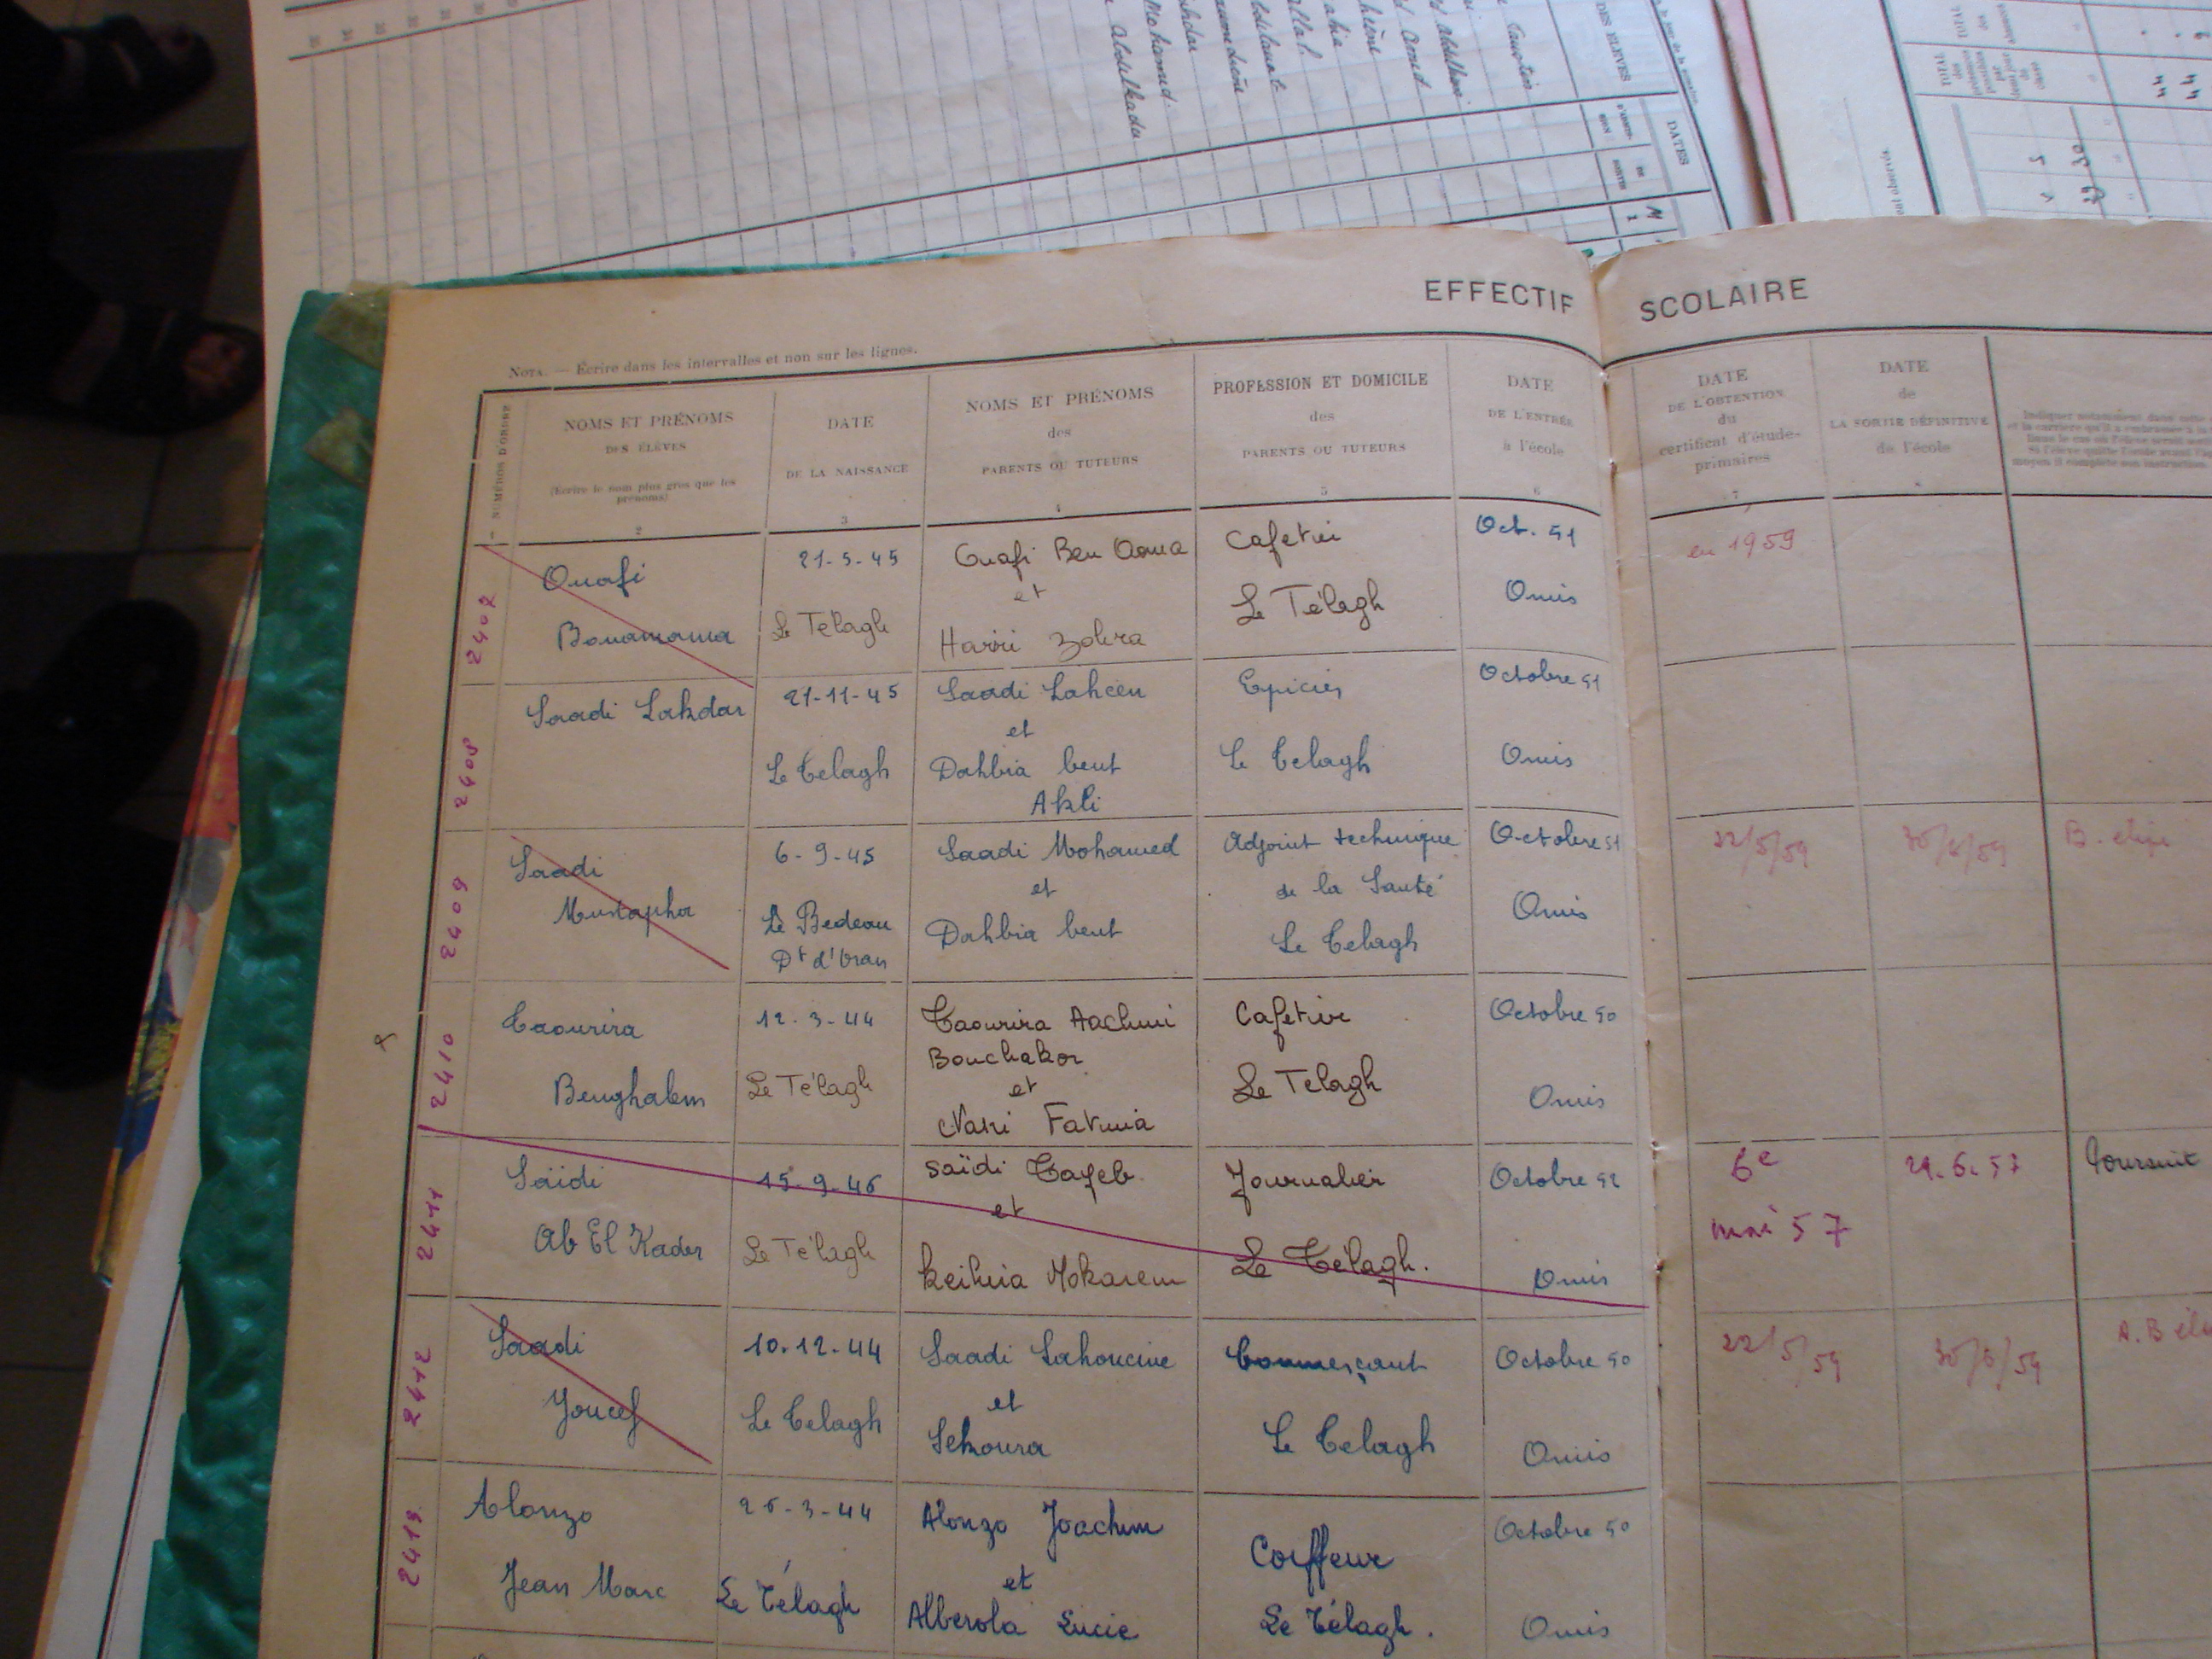 EFFECTIF SCOLAIRE
NOTA. — Écrire dans les intervalles et non sur les lignes.
NUMÉROS D'ORDRE
NOMS ET PRÉNOMS
DES ÉLÈVES
(Écrire le nom plus gros que les
prénoms)
2
DATE
DE LA NAISSANCE
3
NOMS ET PRÉNOMS
des
PARENTS OU TUTEURS
4
PROFESSION ET DOMICILE
des
PARENTS OU TUTEURS
5
DATE
DE L'ENTRÉE
à l'école
6
DATE
DE L'OBTENTION
du
certificat d'étude-
primaires
7
DATE
de
LA SORTIE DÉFINITIVE
de l'école
8
2402
Ouafi
Bouamama
21-5-45
Le Télagh
Ouafi Ben Aoua
et
Zohra
Cafetier
Le Télagh
Oct. 51
Omis
en 1959
2408
Saadi Lakdar
21-11-45
Le Telagh
Saadi Lahcen
et
Dahbia bent
Akli
Epicier
Le Telagh
Octobre 51
Omis
2409
Saadi
Mustapha
6-9-45
Le Bedeau
Dt d'Oran
Saadi Mohamed
et
Dahbia bent
Adjoint technique
de la Santé
Le Telagh
Octobre 51
Omis
22/5/59
30/6/59
2410
Taourira
Benghalem
12-3-44
Le Télagh
Taourira Aachmi
Bouchakor
et
Fatma
Cafetier
Le Telagh
Octobre 50
Omis
2411
Saïdi
Ab El Kader
15-9-46
Le Télagh
Saïdi Tayeb
et
Keihria Mokarem
Journalier
Le Télagh.
Octobre 52
Omis
6e
mai 57
29.6.57
Poursuit
2412
Saadi
Youcef
10.12.44
Le Telagh
Saadi Lahoucine
et
Sekoura
Commerçant
Le Telagh
Octobre 50
Omis
22/5/59
30/6/59
2413
Alonzo
Jean Marc
26-3-44
Le Télagh
Alonzo Joachim
et
Alberola Lucie
Coiffeur
Le Télagh.
Octobre 50
Omis
DES ÉLÈVES
DATES
Mohamed
Abdelkader
TOTAL